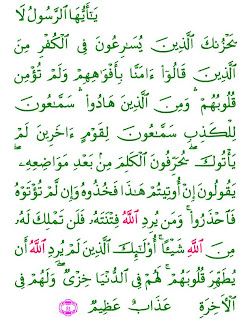 يَٰٓأَيُّهَا ٱلرَّسُولُ لَا
يَحْزُنكَ ٱلَّذِينَ يُسَٰرِعُونَ فِى ٱلْكُفْرِ مِنَ
ٱلَّذِينَ قَالُوٓا۟ ءَامَنَّا بِأَفْوَٰهِهِمْ وَلَمْ تُؤْمِن
قُلُوبُهُمْ ۛ وَمِنَ ٱلَّذِينَ هَادُوا۟ ۛ سَمَّٰعُونَ
لِلْكَذِبِ سَمَّٰعُونَ لِقَوْمٍ ءَاخَرِينَ لَمْ
يَأْتُوكَ ۖ يُحَرِّفُونَ ٱلْكَلِمَ مِنۢ بَعْدِ مَوَاضِعِهِۦ ۖ
يَقُولُونَ إِنْ أُوتِيتُمْ هَٰذَا فَخُذُوهُ وَإِن لَّمْ تُؤْتَوْهُ
فَٱحْذَرُوا۟ ۚ وَمَن يُرِدِ ٱللَّهُ فِتْنَتَهُۥ فَلَن تَمْلِكَ لَهُۥ
مِنَ ٱللَّهِ شَيْـًٔا ۚ أُو۟لَٰٓئِكَ ٱلَّذِينَ لَمْ يُرِدِ ٱللَّهُ أَن
يُطَهِّرَ قُلُوبَهُمْ ۚ لَهُمْ فِى ٱلدُّنْيَا خِزْىٌ ۖ وَلَهُمْ فِى
ٱلْءَاخِرَةِ عَذَابٌ عَظِيمٌ ٤١